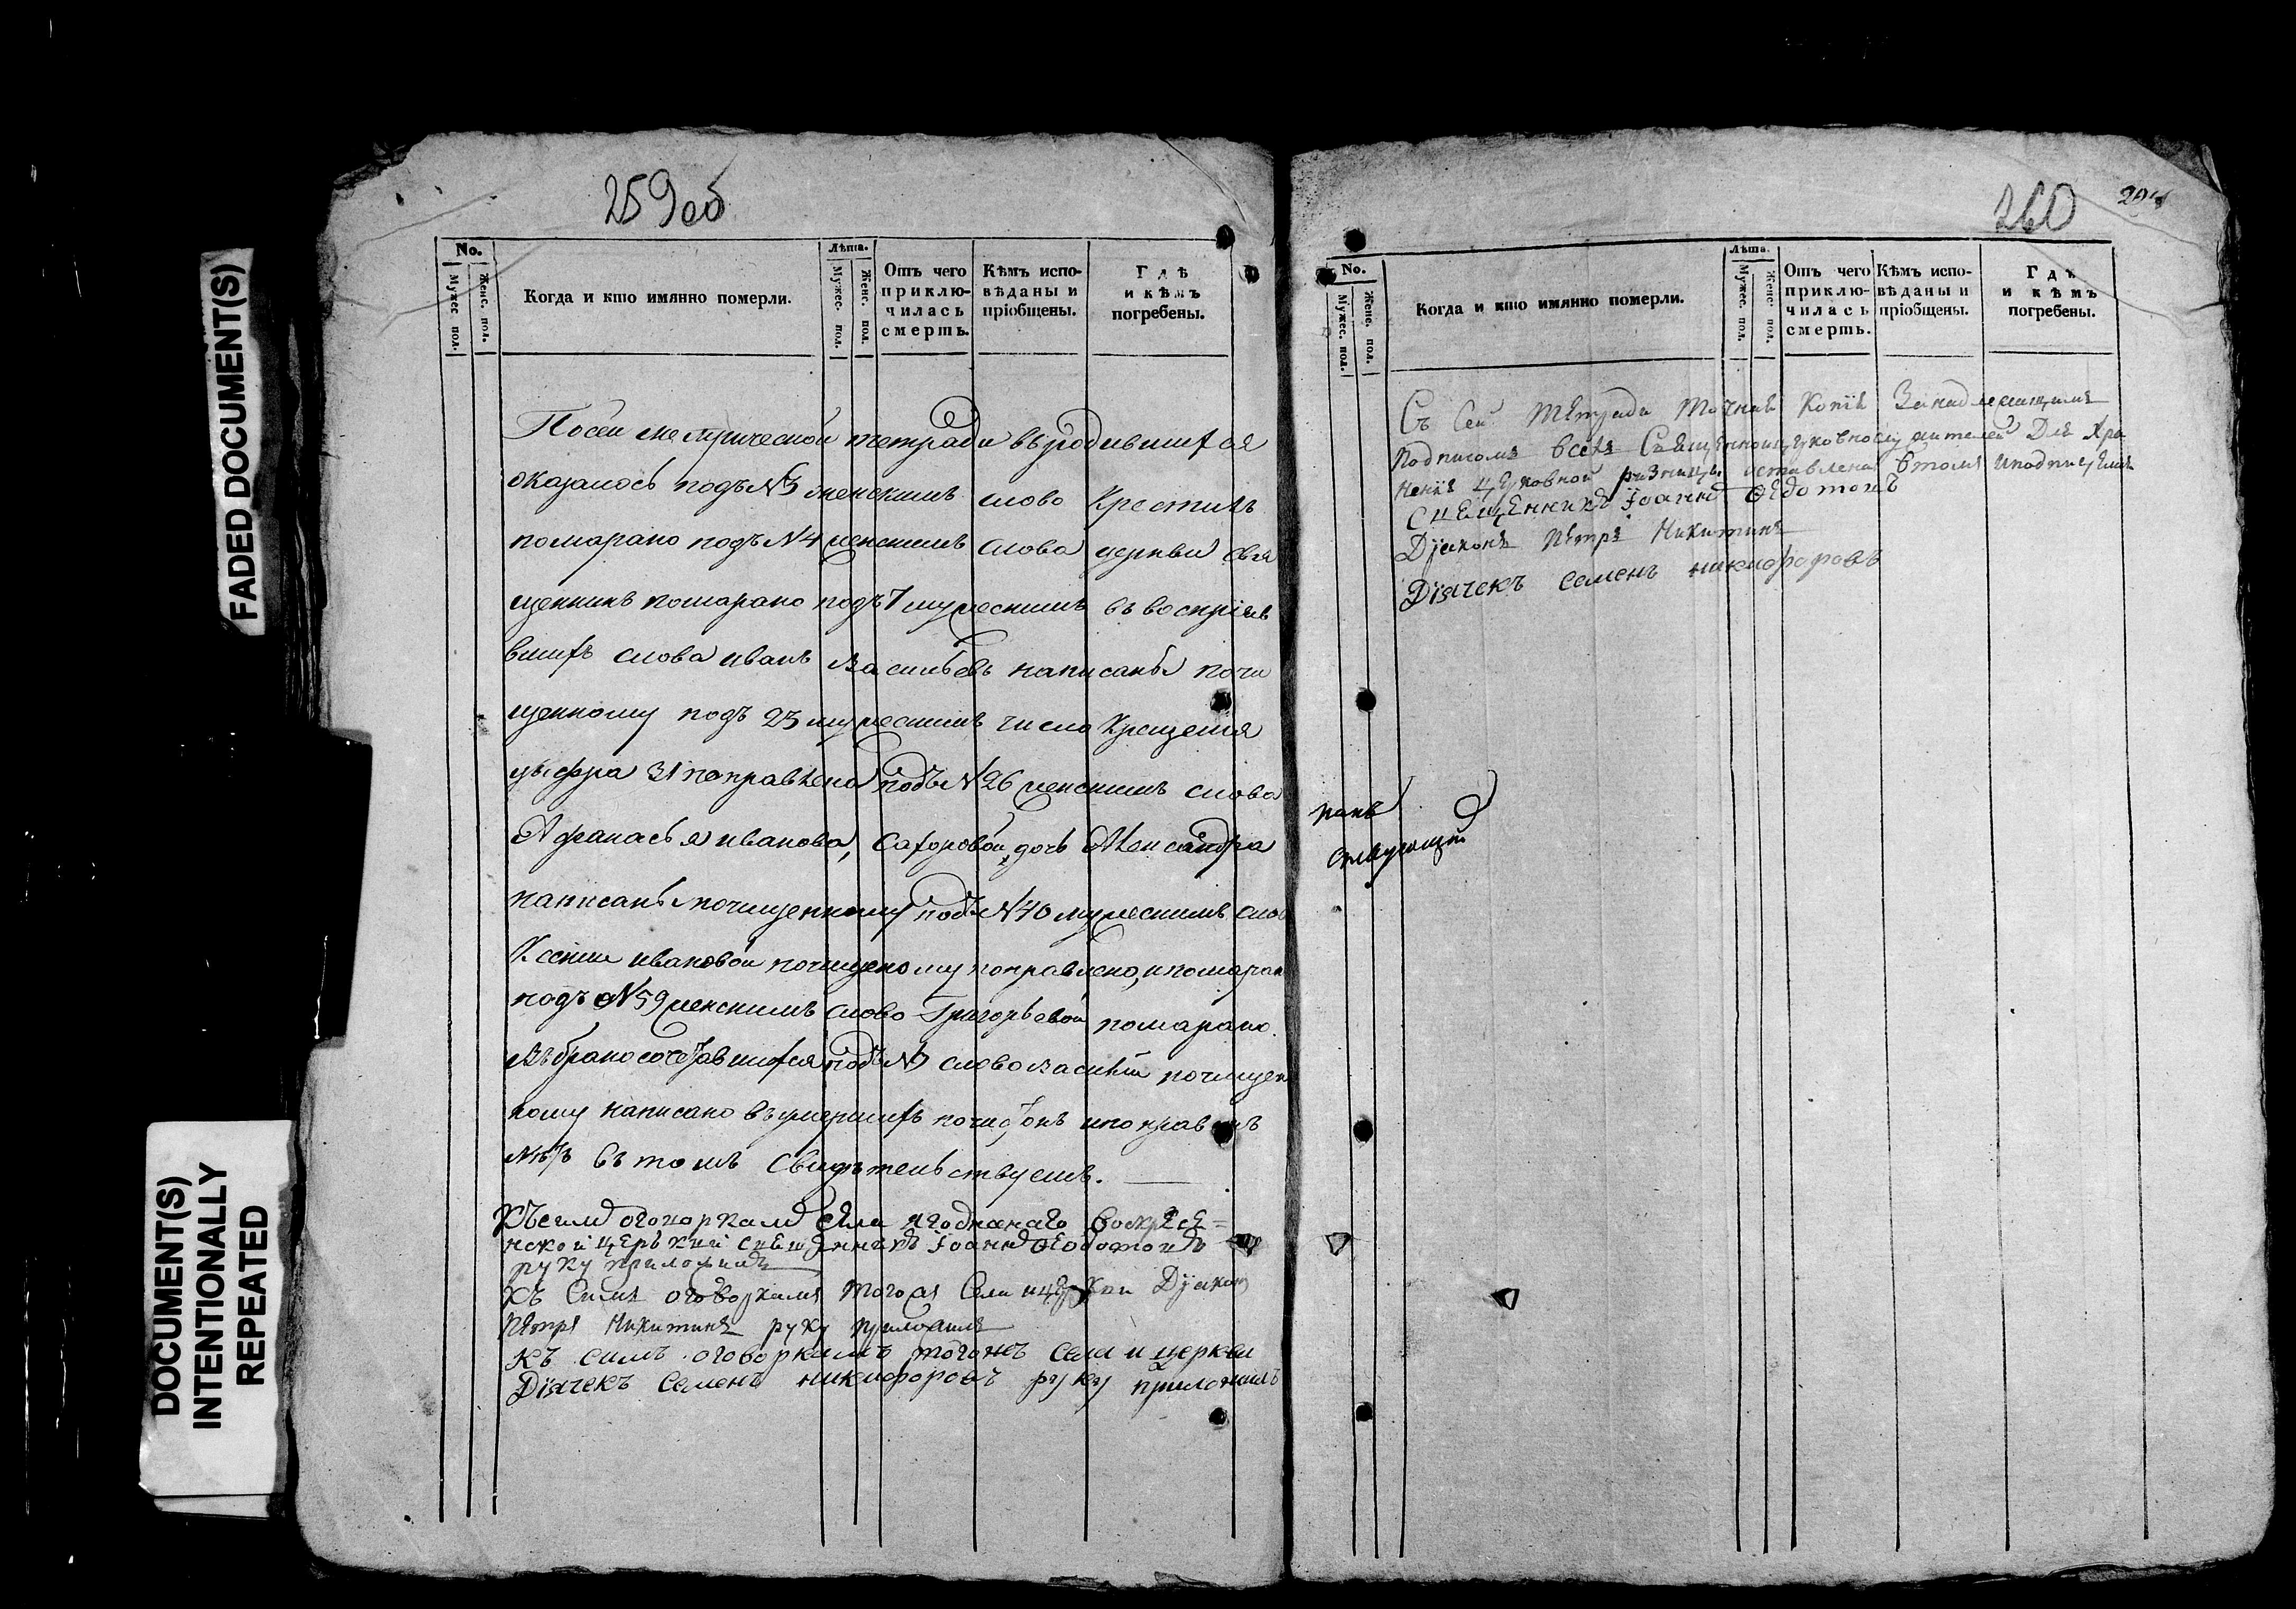 FADED DOCUMENT(S)
DOCUMENT(S)
INTENTIONALLY
REPEATED
259об
No.
Мужес. пол.
Женс. пол.
Когда и кто имянно померли.
Лѣта.
Мужес. пол.
Женс. пол.
Отъ чего
приклю-
чилась
смерть.
Кѣмъ испо-
вѣданы и
пріобщены.
Гдѣ
и кѣмъ
погребены.
По сей метрической тетради въ родившихся
оказалось подъ №3 женскимъ слово Крестилъ
помарано подъ №4 женскимъ слова церкви свя
щенникъ помарано подъ 7 мужескимъ въ воспріем
вшихъ слова иванъ Васильевъ написаны по чи
щенному подъ 23 мужескимъ число Крещенія
цыфра 31 поправлена подъ №26 женскимъ слова
Афанасья иванова, дочь Александра
написаны почищенному подъ №40 мужескимъ слов
Ксеніи ивановой почищеному поправлено, и помаран
подъ №59 женскимъ слово Григорьевой помарано.
Въ бракосочетавшихся подъ № слово Василій почищен
ному написано въ умершихъ и поправ
въ томъ свидѣтельствуемъ.
Къ симъ оговоркамъ села Ягоднаго Воскресе=
нской церькви священникъ Іоаннъ Ѳедотовъ
руку приложилъ
Къ симъ оговоркамъ тогожъ села и церкви Дїяконъ
Пѣтръ Никитинъ руку приложилъ
Къ симъ оговоркамъ тогожъ села и церкви
Діячекъ Семенъ никифоровъ руку приложилъ
260
No.
Мужес. пол.
Женс. пол.
Когда и кто имянно померли.
Лѣта.
Мужес. пол.
Женс. пол.
Отъ чего
приклю-
чилась
смерть.
Кѣмъ испо-
вѣданы и
пріобщены.
Гдѣ
и кѣмъ
погребены.
Съ Сей тѣтради точная копїя За надлежащимъ
подписомъ всѣхъ Свѣщенноцерковнослужителей Для Хра
ненїя въ церковной ризницѣ оставлена в томъ и подписуемся
Священникъ Іоаннъ Ѳедотовъ
Дїяконъ Пѣтръ Никитинъ
Діячекъ Семенъ никифоровъ